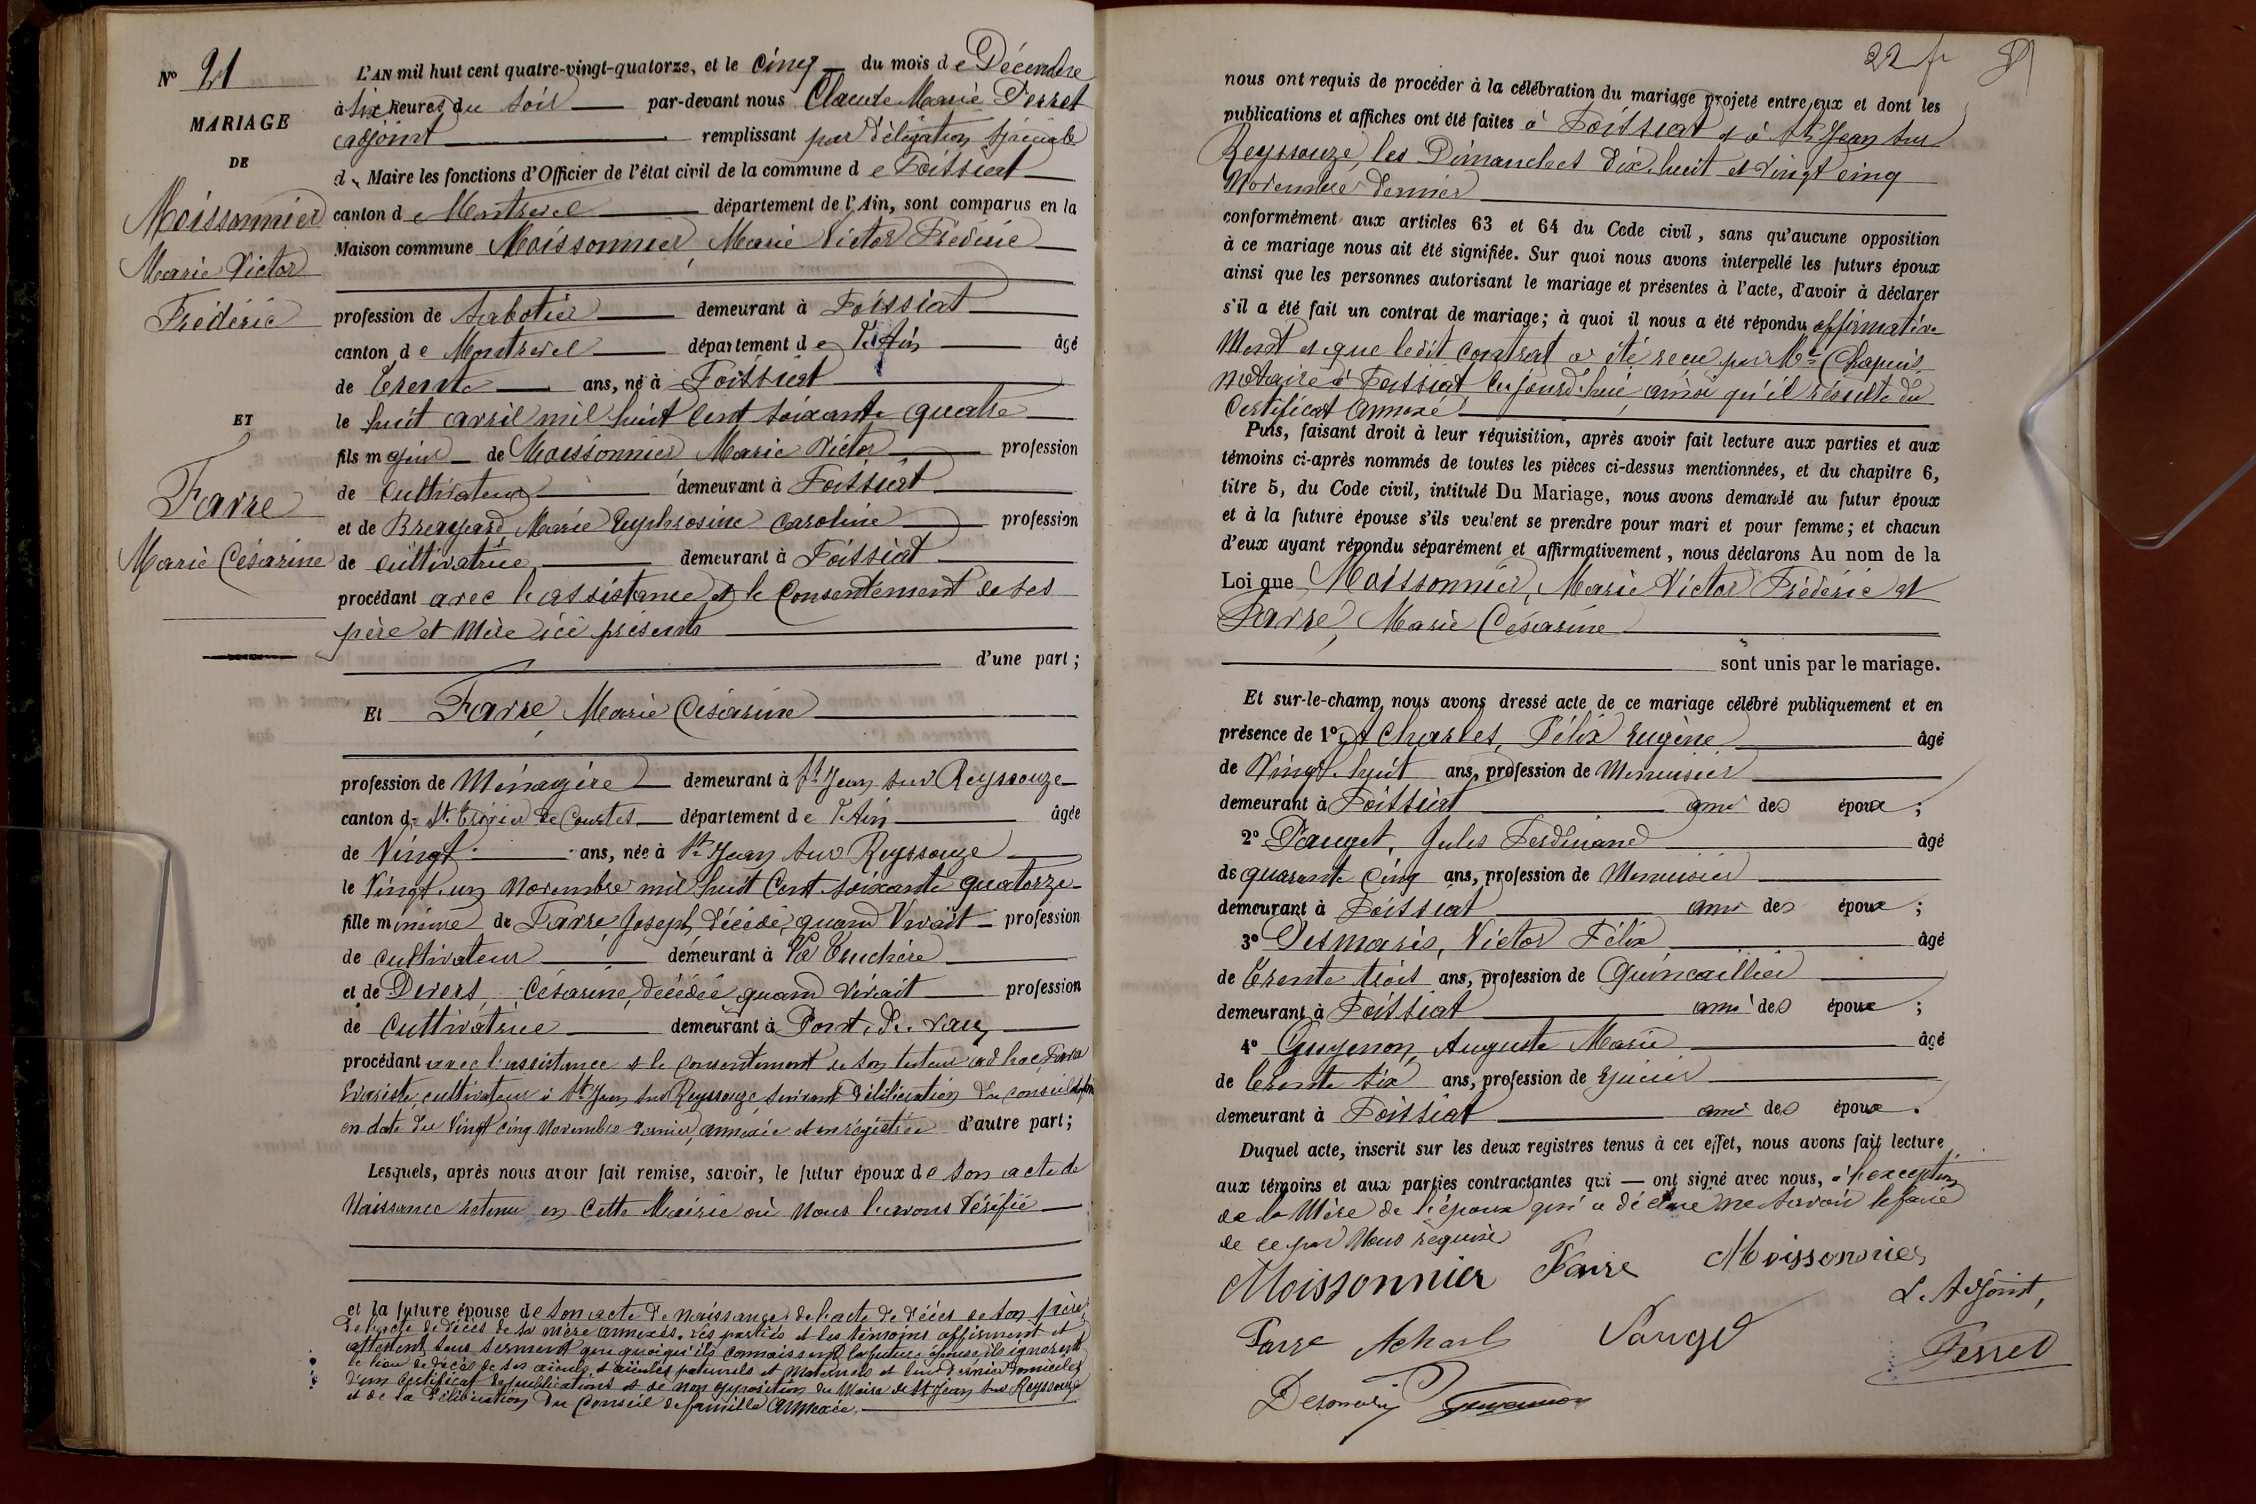 N° 21
MARIAGE
DE
Moissonnier
Marie Victor
Frédéric
ET
Favre
Marie Césarine
L'AN mil huit cent quatre-vingt-quatorze, et le cinq du mois de Décembre
à six heures du soir par-devant nous Claude Marie Perret
adjoint remplissant par délégation spéciale
d Maire les fonctions d'Officier de l'état civil de la commune de Foissiat
canton de Montrevel département de l'Ain, sont comparus en la
Maison commune Moissonnier, Marie Victor Frédéric
profession de sabotier demeurant à Foissiat
canton de Montrevel département de l'Ain âgé
de trente ans, né à Foissiat
le huit avril mil huit cent soixante quatre
fils majeur de Moissonnier Marie Victor profession
de cultivateur demeurant à Foissiat
et de Marie Euphrosine Caroline profession
de cultivatrice demeurant à Foissiat
procédant avec l'assistance et le consentement de ses
père et mère ici présents
d'une part ;
Et Favre, Marie Césarine
profession de Ménagère demeurant à St Jean sur Reyssouze
canton de St Trivier de Courtes département de l'Ain âgée
de Vingt ans, née à St Jean sur Reyssouze
le Vingt un Novembre mil huit cent soixante quatorze
fille mineure de Favre Joseph, décédé, quand Vivait profession
de cultivateur demeurant à
et de Devers, Césarine, décédée quand vivait profession
de cultivatrice demeurant à Pont de Vaux
procédant avec l'assistance et le consentement de son tuteur ad hoc, Favre
Evariste, cultivateur à St Jean sur Reyssouze, suivant délibération du conseil de famille
en date du Vingt cinq Novembre dernier, annexée et enregistrée d'autre part ;
Lesquels, après nous avoir fait remise, savoir, le futur époux de son acte de
Naissance retenu en cette Mairie où Nous l'avons vérifié
et la future épouse de son acte de naissance, de l'acte de décès de son père,
de l'acte de décès de sa mère annexés. Les parties et les témoins affirment et
attestent sous serment que quoiqu'ils connaissent la future épouse, ils ignorent
le lieu de décès de ses aïeuls et aïeules paternels et maternels et leur dernier domicile,
d'un certificat de publications et de non opposition du Maire de St Jean sur Reyssouze
et de la délibération du conseil de famille annexée.
22 f
nous ont requis de procéder à la célébration du mariage projeté entre eux et dont les
publications et affiches ont été faites à Foissiat et à St Jean sur
Reyssouze, les Dimanches dix huit et vingt cinq
Novembre dernier
conformément aux articles 63 et 64 du Code civil, sans qu'aucune opposition
à ce mariage nous ait été signifiée. Sur quoi nous avons interpellé les futurs époux
ainsi que les personnes autorisant le mariage et présentes à l'acte, d'avoir à déclarer
s'il a été fait un contrat de mariage ; à quoi il nous a été répondu affirmative
Ment et que ledit contrat a été reçu par Me Chapuis
notaire à Foissiat cejourd'hui, ainsi qu'il résulte du
Certificat annexé
Puis, faisant droit à leur réquisition, après avoir fait lecture aux parties et aux
témoins ci-après nommés de toutes les pièces ci-dessus mentionnées, et du chapitre 6,
titre 5, du Code civil, intitulé Du Mariage, nous avons demandé au futur époux
et à la future épouse s'ils veulent se prendre pour mari et pour femme ; et chacun
d'eux ayant répondu séparément et affirmativement, nous déclarons Au nom de la
Loi que Moissonnier, Marie Victor Frédéric et
Favre, Marie Césarine
sont unis par le mariage.
Et sur-le-champ nous avons dressé acte de ce mariage célébré publiquement et en
présence de 1° Charles, Félix Eugène âgé
de Vingt huit ans, profession de Menuisier
demeurant à Foissiat ami des époux ;
2° Pauget, Jules Ferdinand âgé
de quarante cinq ans, profession de Menuisier
demeurant à Foissiat ami des époux ;
3° Desmaris, Victor Félix âgé
de trente trois ans, profession de Quincaillier
demeurant à Foissiat ami des époux ;
4° Guyenon, Auguste Marie âgé
de trente six ans, profession de épicier
demeurant à Foissiat ami des époux.
Duquel acte, inscrit sur les deux registres tenus à cet effet, nous avons fait lecture
aux témoins et aux parties contractantes qui — ont signé avec nous, à l'exception
de la Mère de l'époux qui a déclaré ne savoir le faire
de ce par Nous requise
Moissonnier Favre Moissonnier
L'Adjoint,
Favre Acharl Pauget Perret
Desmaris Guyenon